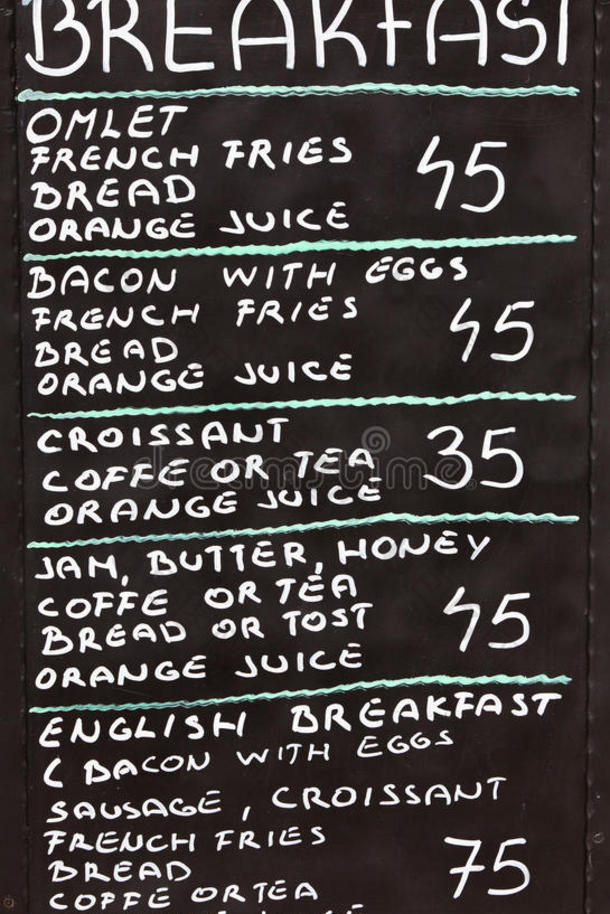 BREAKFAST
OMLET
FRENCH FRIES
BREAD
ORANGE JUICE
45
BACON WITH EGGS
FRENCH FRIES
BREAD
ORANGE JUICE
45
CROISSANT
COFFE OR TEA
ORANGE JUICE
35
dreamstime
JAM, BUTTER, HONEY
COFFE OR TEA
BREAD OR TOST
ORANGE JUICE
45
ENGLISH BREAKFAST
( BACON WITH EGGS
SAUSAGE, CROISSANT
FRENCH FRIES
BREAD
COFFE OR TEA
75